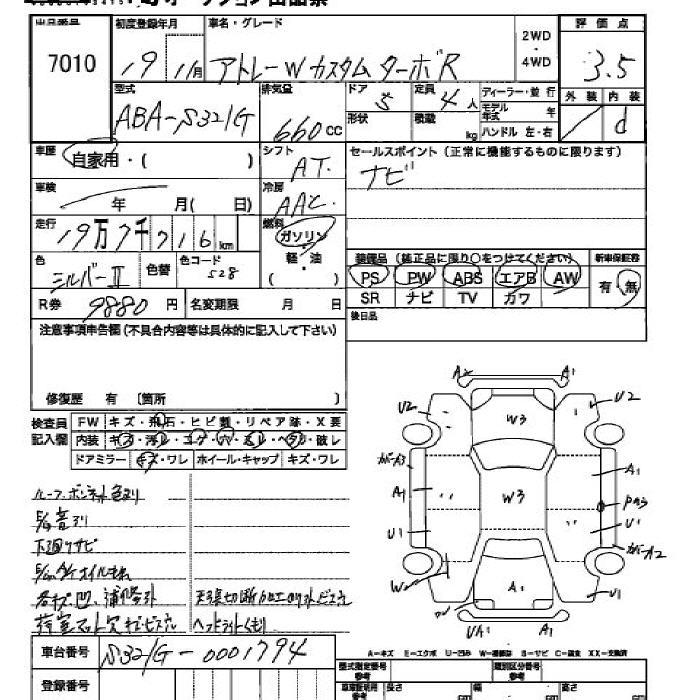 出品番号 初度登録年月 車名・グレード 2WD・4WD 評価点
7010 19 11月 アトレーW カスタム ターボR 3.5
型式 排気量 ドア 定員 ディーラー・並行 外装 内装
ABA-S321G 660cc 5 4人 モデル年式 年 d
形状 積載 kg ハンドル 左・右
車歴 自家用・( ) シフト AT. セールスポイント(正常に機能するものに限ります)
車検 年 月( 日) 冷房 AAC ナビ
走行 19万7千716km 燃料 ガソリン・軽・油 ( )
色 シルバーII 色替 色コード S28 装備品(純正品に限り○をつけてください) 新車保証書
PS PW ABS エアB AW 有・無
SR ナビ TV カワ
R券 9880円 名変期限 月 日 後日品
注意事項申告欄(不具合内容等は具体的に記入して下さい)
修復歴 有 〔箇所 〕
検査員記入欄 FW キズ・飛石・ヒビ割・リペア跡・X要
内装 キズ・汚レ・コゲ・穴・スレ・ヘタリ・破レ
ドアミラー キズ・ワレ ホイール・キャップ キズ・ワレ
ルーフ、ボンネット色アリ
E/g音アリ
下廻りサビ
各キズ、凹、補修跡
ヘッドライトくもり
車台番号 S321G-0001794
登録番号
A2 A1
U2 W3 U2
カバーA3 A1
A1 W3
U1 U1
カバーA2
W2 A1 U1
UA1 A1
A=キズ E=エクボ U=凹み W=補修跡 S=サビ C=腐食 XX=交換済
型式指定番号 類別区分番号
長さ 幅 高さ